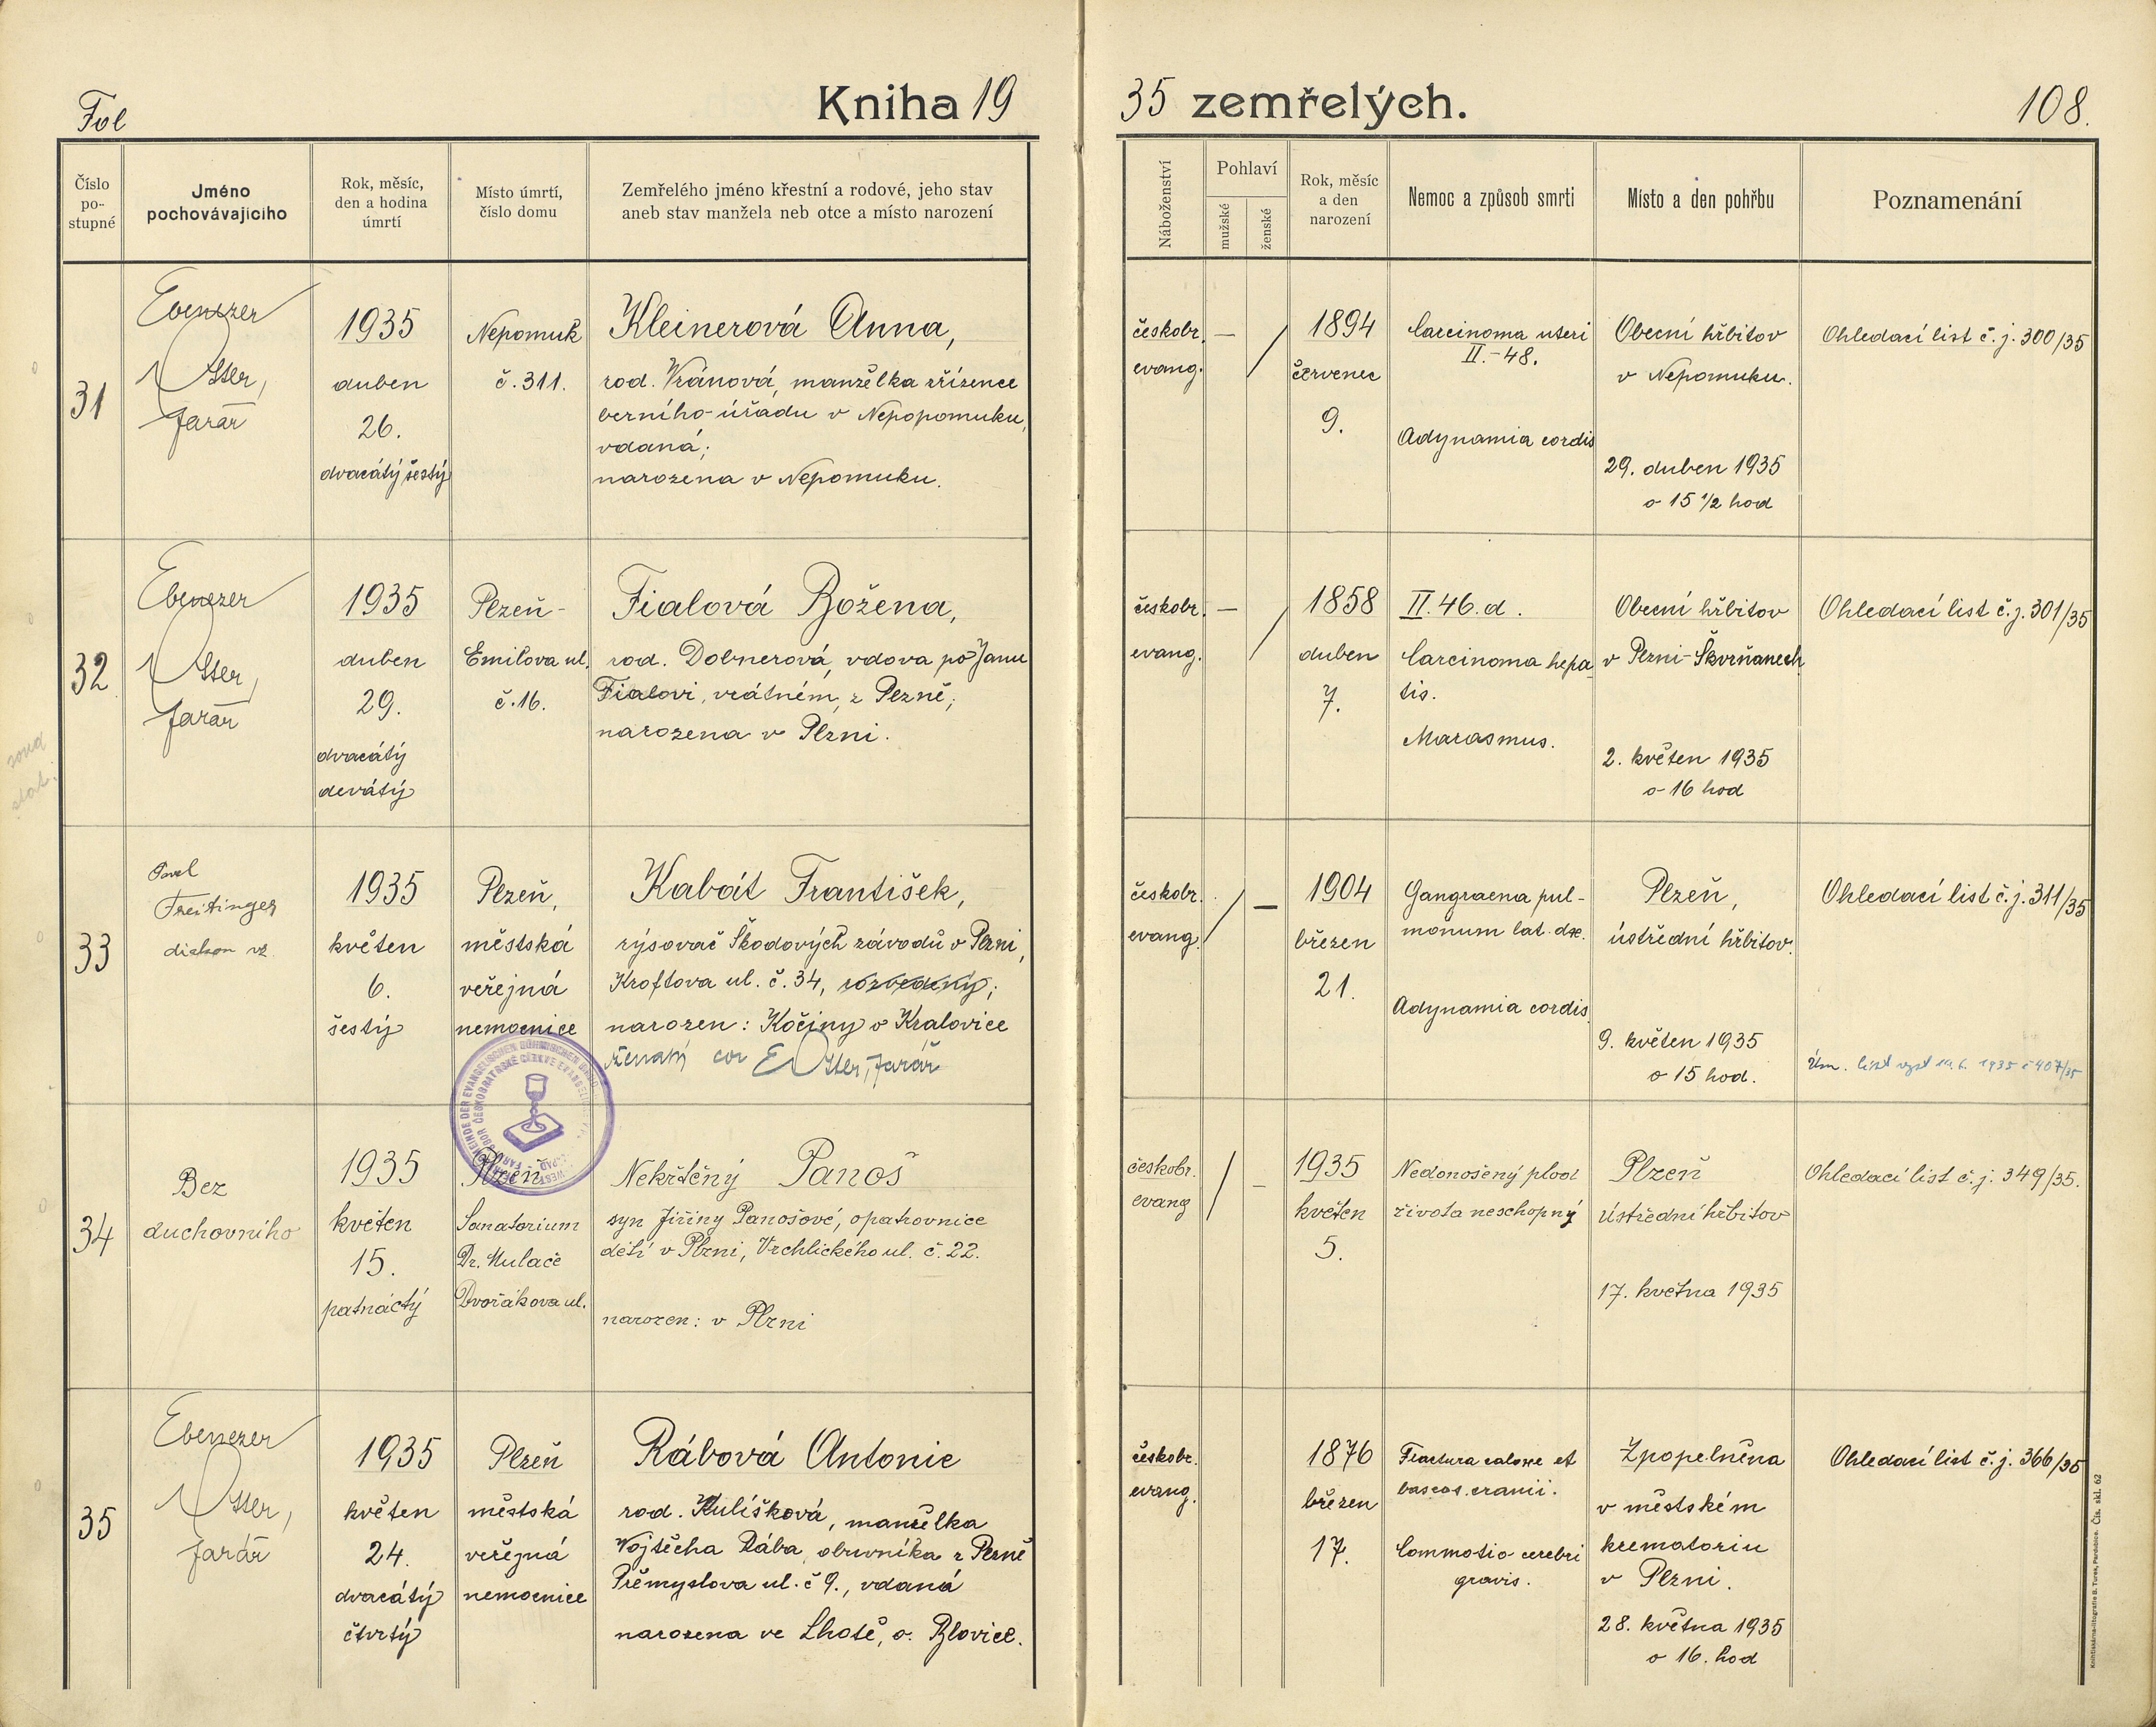 Fol
Kniha 19
35 zemřelých.
108.
Číslo
po-
stupné
Jméno
pochovávajícího
Rok, měsíc,
den a hodina
úmrtí
Místo úmrtí,
číslo domu
Zemřelého jméno křestní a rodové, jeho stav
aneb stav manžela neb otce a místo narození
Náboženství
Pohlaví
mužské
ženské
Rok, měsíc
a den
narození
Nemoc a způsob smrti
Místo a den pohřbu
Poznamenání
31
Ebenezer
Otter,
farář
1935
duben
26.
dvacátý šestý
Nepomuk
č. 311.
Kleinerová Anna,
rod. Vránová, manželka zřízence
berního úřadu v Nepopomuku,
vdaná;
narozena v Nepomuku.
českobr.
evang.
—
/
1894
červenec
9.
Carcinoma uteri
II.-48.
Adynamia cordis
Obecní hřbitov
v Nepomuku.
29. duben 1935
o 15 1/2 hod
Ohledací list č. j. 300/35
32
Ebenezer
Otter,
farář
1935
duben
29.
dvacátý
devátý
Plzeň-
Emilova ul.
č. 16.
Fialová Božena,
rod. Dobnerová, vdova po Janu
Fialovi, vrátném, z Plzně;
narozena v Plzni.
českobr.
evang.
—
/
1858
duben
7.
II. 46. d.
Carcinoma hepa-
tis.
Marasmus.
Obecní hřbitov
v Plzni-Škvrňanech
2. květen 1935
o 16 hod
Ohledací list č. j. 301/35
33
Pavel
Freitinger
diakon vz.
1935
květen
6.
šestý
Plzeň,
městská
veřejná
nemocnice
Kabát František,
rýsovač Škodových závodů v Plzni,
Kroftova ul. č. 34, rozvedený;
narozen: Kočiny o Kralovice
ženatý cor EOtter, farář
českobr.
evang.
/
—
1904
březen
21.
Gangraena pul-
monum lat. dx.
Adynamia cordis
Plzeň,
ústřední hřbitov.
9. květen 1935
o 15 hod.
Ohledací list č. j. 311/35
Úm. list vyst 19. 6. 1935 č 407/35
34
Bez
duchovního
1935
květen
15.
patnáctý
Plzeň
Sanatorium
Dr. Mulače
Dvořákova ul.
Nekřtěný Panoš
syn Jiřiny Panošové, opatrovnice
dětí v Plzni, Vrchlického ul. č. 22.
narozen: v Plzni
českobr.
evang
/
—
1935
květen
5.
Nedonošený plod
života neschopný
Plzeň
Ústřední hřbitov
17. května 1935
Ohledací list č. j. 349/35.
35
Ebenezer
Otter,
farář
1935
květen
24.
dvacátý
čtvrtý
Plzeň
městská
veřejná
nemocnice
Rábová Antonie
rod. Kulíšková, manželka
Vojtěcha Rába, obuvníka z Plzně
Přemyslova ul. č 9., vdaná
narozena ve Lhotě, o. Blovice.
českobr.
evang.
1876
březen
17.
Fractura calove et
baseos cranii.
Commotio cerebri
gravis.
Zpopelněna
v městském
krematoriu
v Plzni.
28. května 1935
o 16. hod
Ohledací list č. j. 366/35
Knihtiskárna-litografie B. Turek, Pardubice. Čís. skl. 62